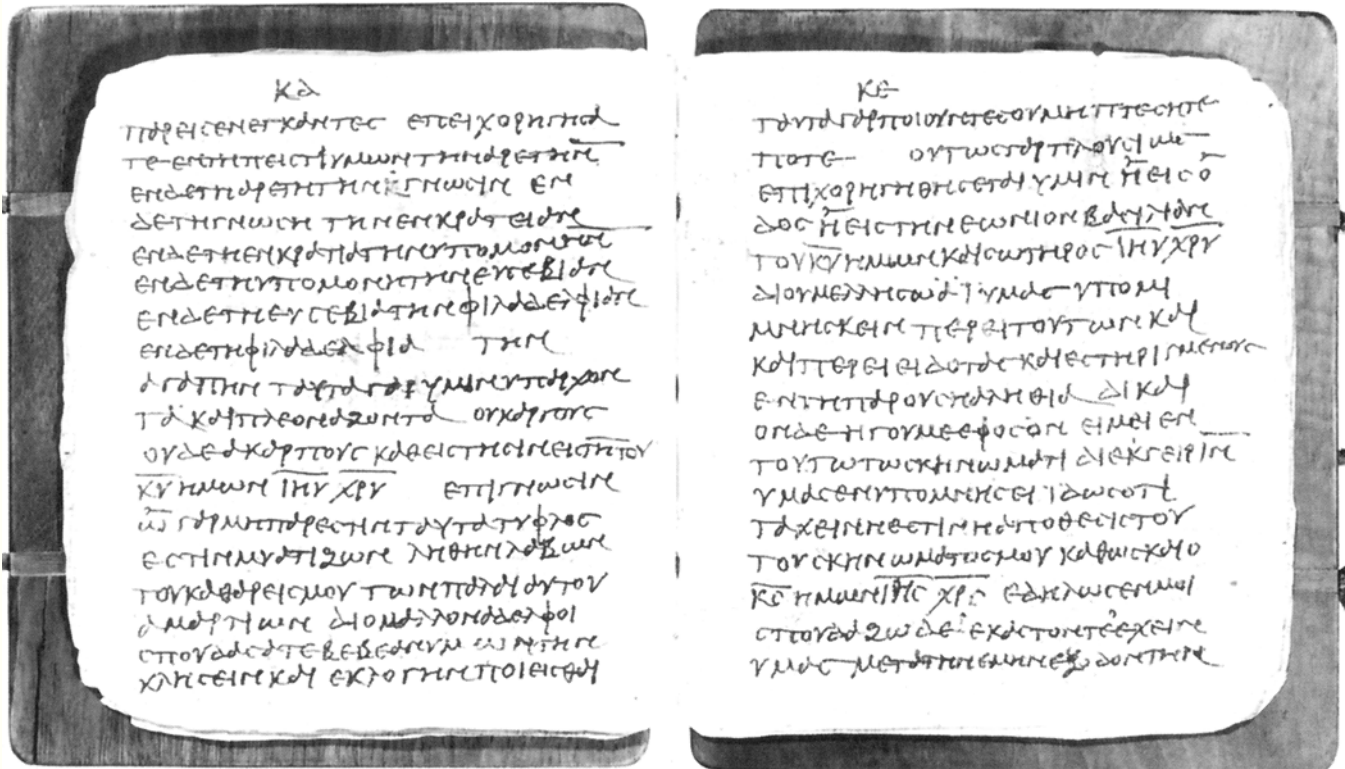 κδ
παρεισενεγκαντες επειχορηγησα
τε εν τη πειστι υμων την αρετην
εν δε τη αρετη την γνωσιν εν
δε τη γνωσι την ενκρατειαν
εν δε τη ενκρατια την υπομονην
εν δε τη υπομονη την ευσεβιαν
εν δε τη ευσεβια την φιλαδελφιαν
εν δε τη φιλαδελφια την
αγαπην ταυτα γαρ υμιν υπαρχον
τα και πλεοναζοντα ουκ αργους
ουδε ακαρπους καθειστησιν εις την του
κ̅υ̅ ημων ι̅η̅υ̅ χ̅ρ̅υ̅ επιγνωσιν
ω γαρ μη παρεστιν ταυτα τυφλος
εστιν μυατιζων ληθην λαβων
του καθαρεισμου των παλαι αυτου
αμαρτιων διο μαλλον αδελφοι
σπουδασατε βεβεαν υμων την
κλησειν και εκλογην ποιεισθαι
κε
ταυτα γαρ ποιουντες ου μη πτεσητε
ποτε ουτως γαρ πλουσιως
επιχορηγηθησεται υμιν η εισο
δος η εις την εωνιον βασιλιαν
του κ̅υ̅ ημων και σωτηρος ι̅η̅υ̅ χ̅ρ̅υ̅
διο υμελλησω αι υμας υπομι
μνησκειν περει τουτων και
καιπερ ειειδοτας και εστηριγμενους
εν τη παρουση αληθια δικαι
ον δε ηγουμε εφ οσον ειμει εν
τουτω τω σκηνωματι διεγειριν
υμας εν υπομνησει ιδως οτι
ταχεινη εστιν η αποθεσις του
του σκηνωματος μου καθως και ο
κ̅ς̅ ημων ι̅η̅ς̅ χ̅ρ̅ς̅ εδηλωσεν μοι
σπουδαζω δε εκαστοντε εχειν
υμας μετα την εμην εξοδον την